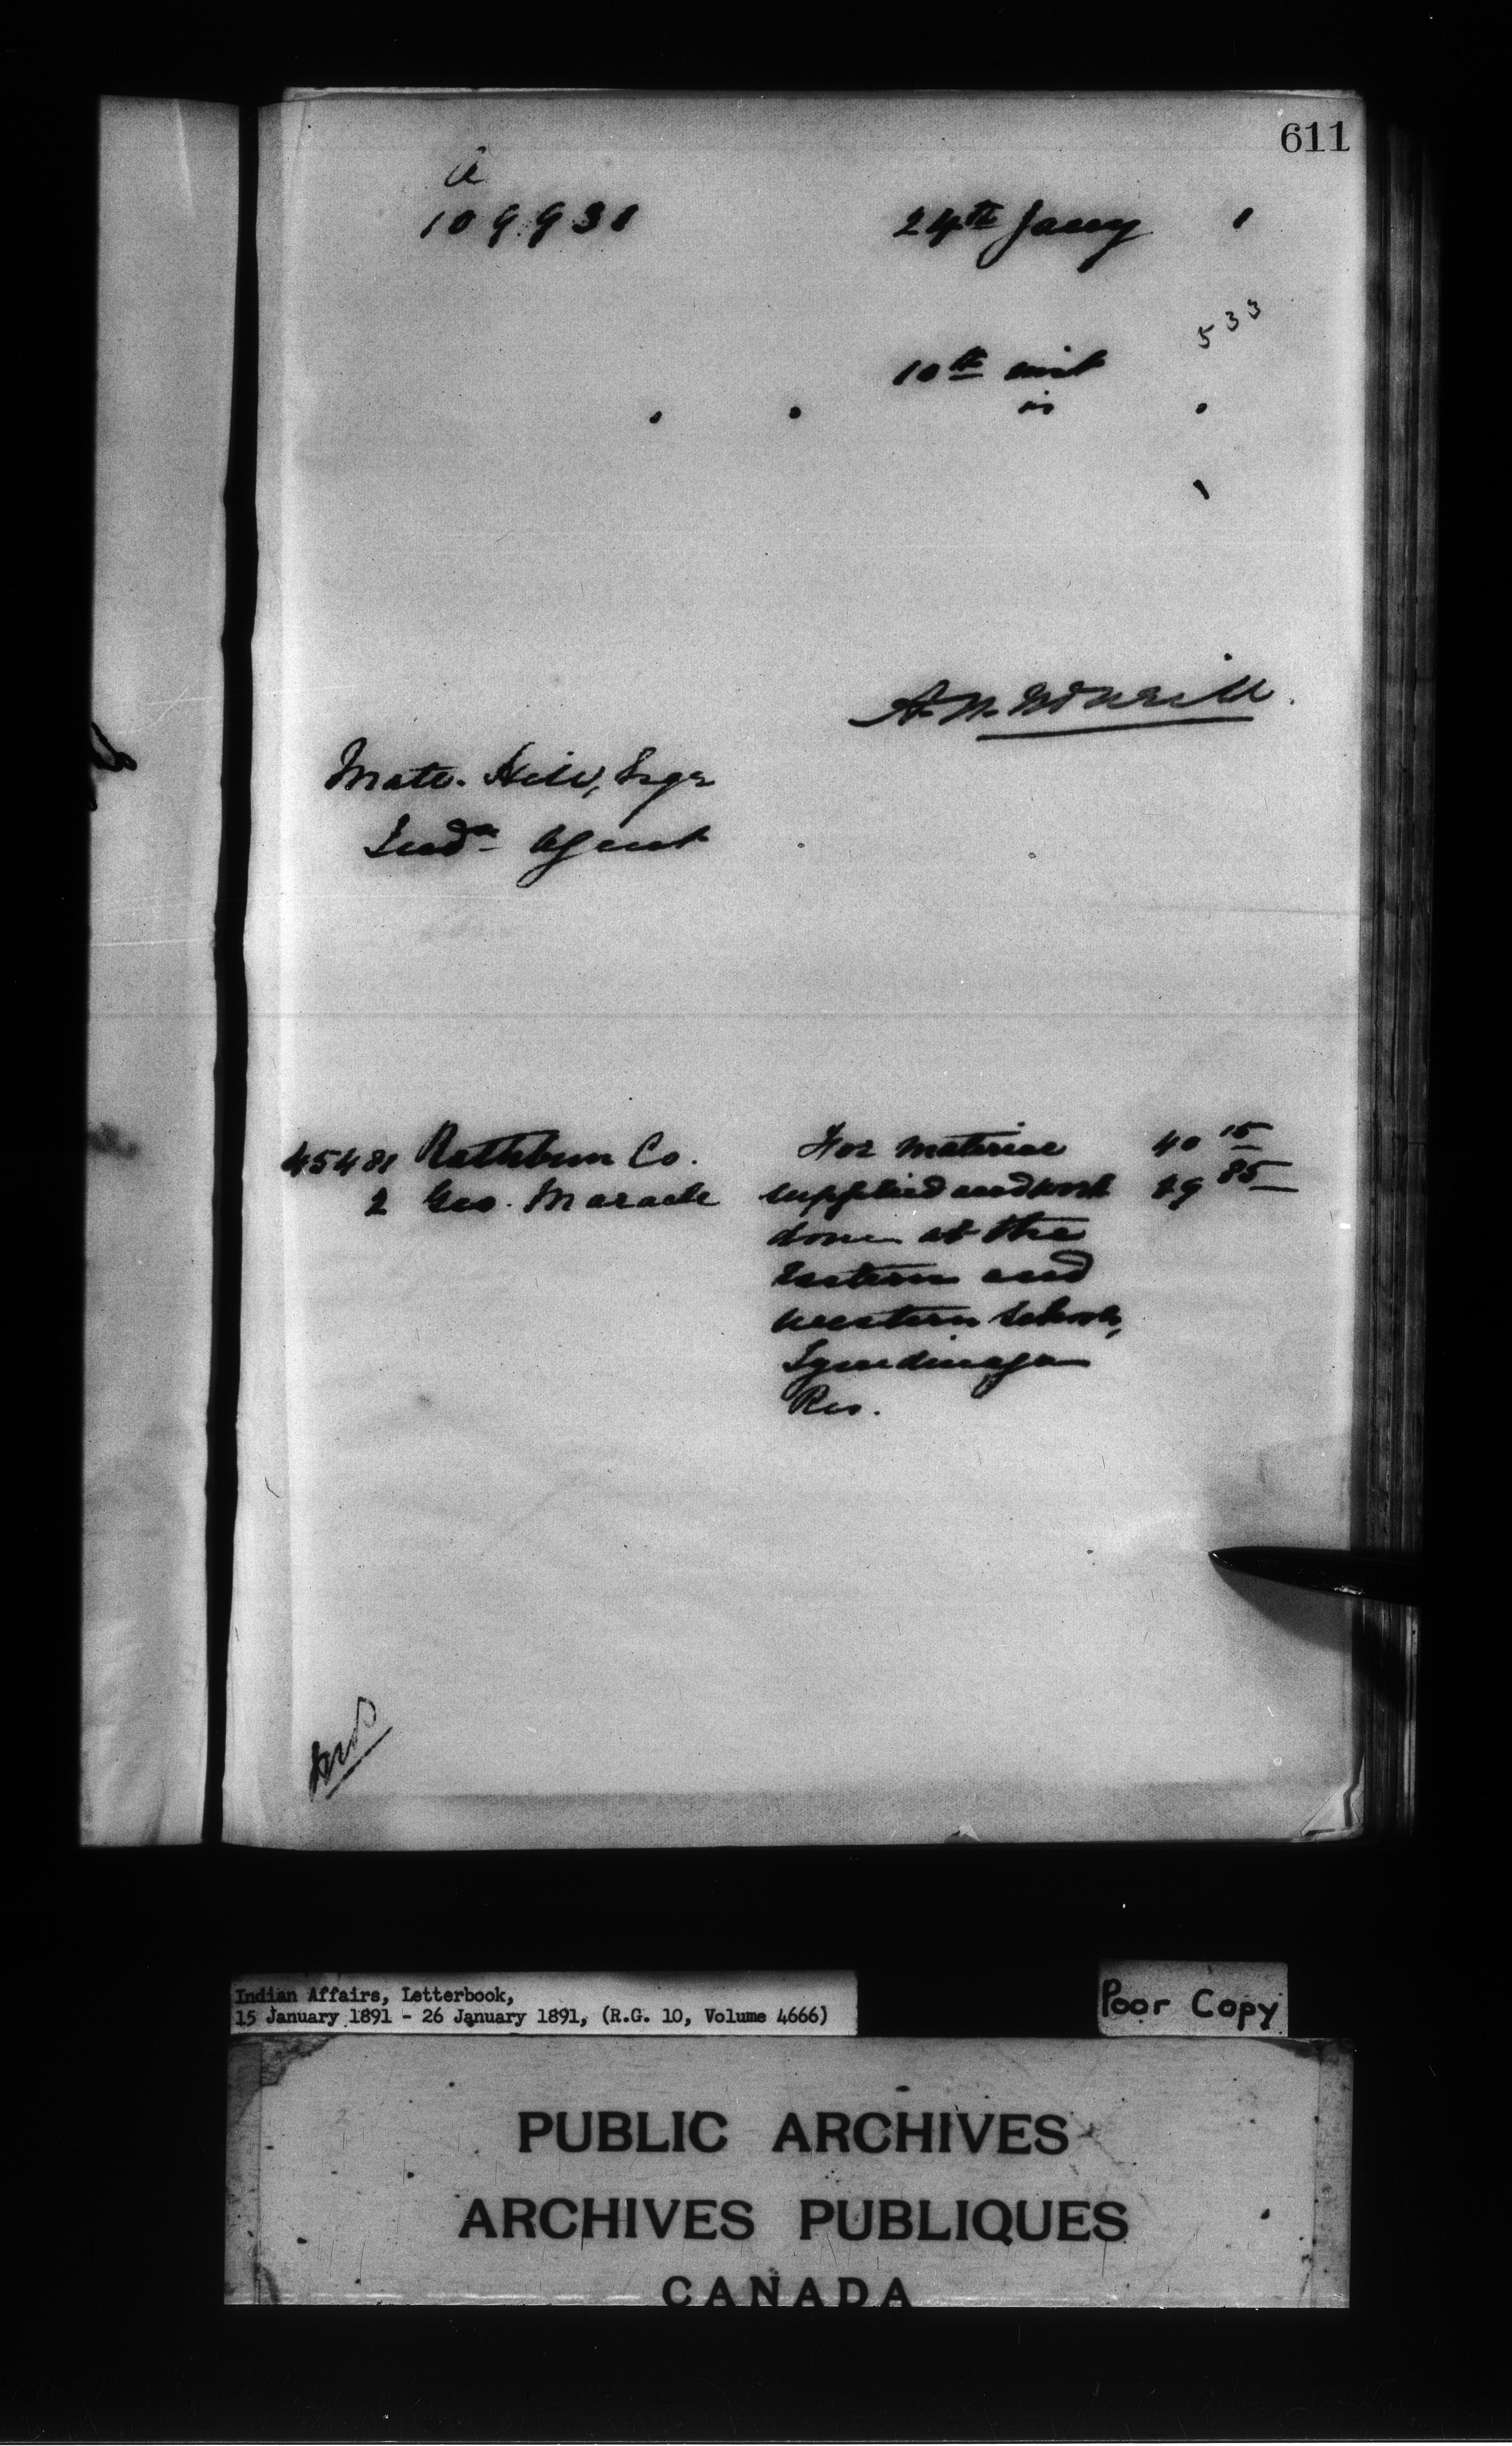 611
a
109931 24th Jany 1
533
10th inst
is
Matw. Hill, Esqr
Indn Agent
45481 Rathbun Co. For material 40 15
2 Geo. Maracle supplied and work 29 85
done at the
Eastern and
Western Schools,
Tyendinaga
Res.
Indian Affairs, Letterbook,
15 January 1891 - 26 January 1891, (R.G. 10, Volume 4666)
Poor Copy
PUBLIC ARCHIVES
ARCHIVES PUBLIQUES
CANADA